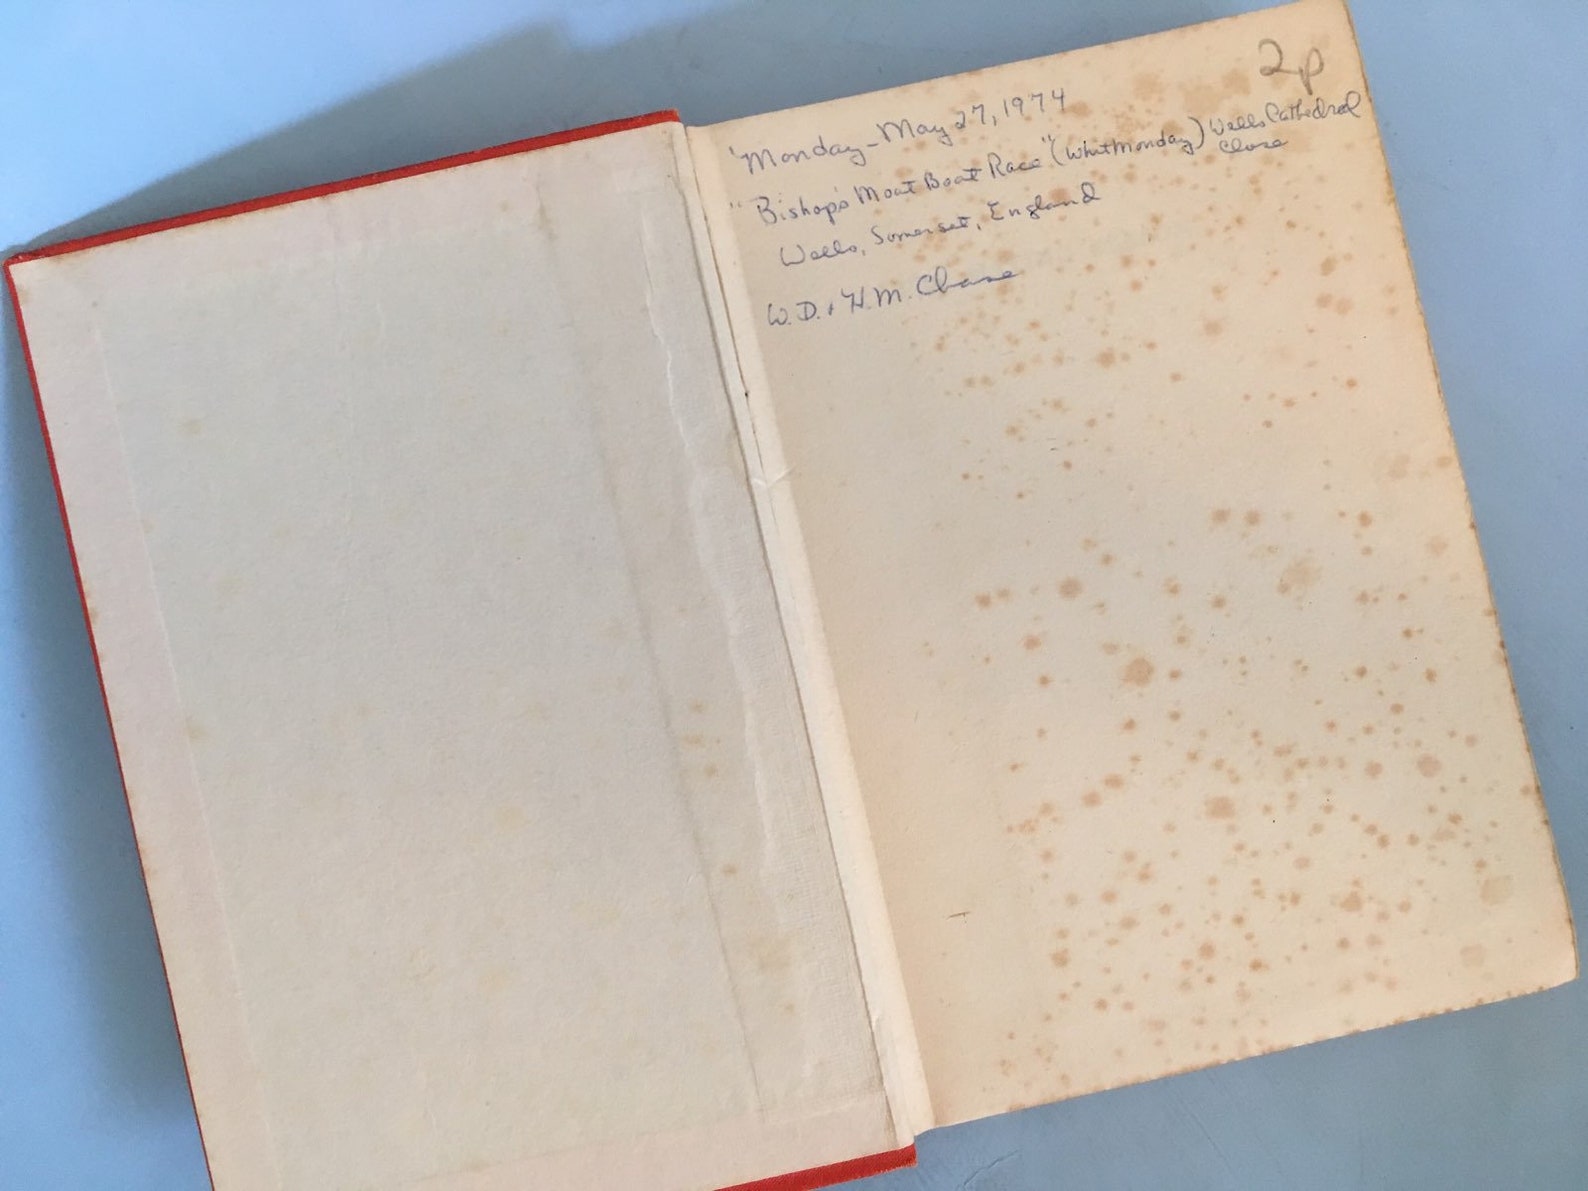 2p
'Monday - May 27, 1974
"Bishop's Moat Boat Race" (WhitMonday) Wells Cathedral
Close
Wells, Somerset, England
W.D. + H.M. Chase